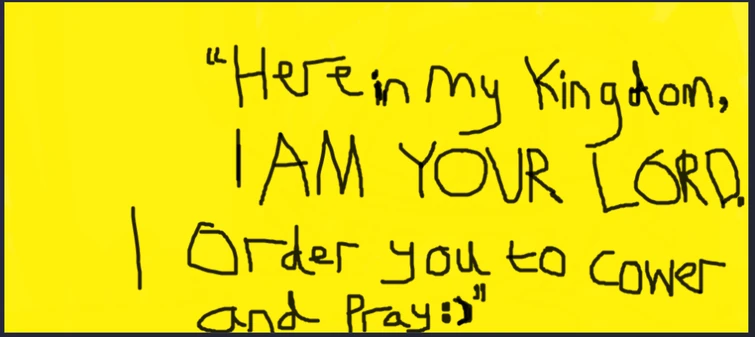 "Here in my Kingdom,
I AM YOUR LORD.
I Order you to cower
and Pray:)"